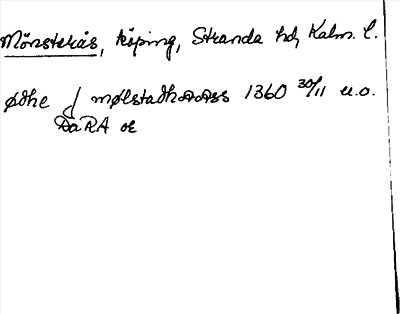 Mönsterås, köping, Stranda hd, Kalm. l.
ødhe j mølstadhaass 1360 30/11 u.o.
DaRA or